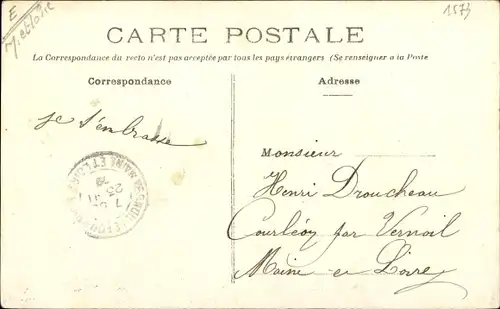 E
1573
CARTE POSTALE
La Correspondance du recto n'est pas acceptée par tous les pays étrangers (Se renseigner a la Poste
Correspondance
Adresse
je t'embrasse
MAINE ET LOIRE
Monsieur
Henri Droucheau
Courléon par Vernoil
Maine et Loire